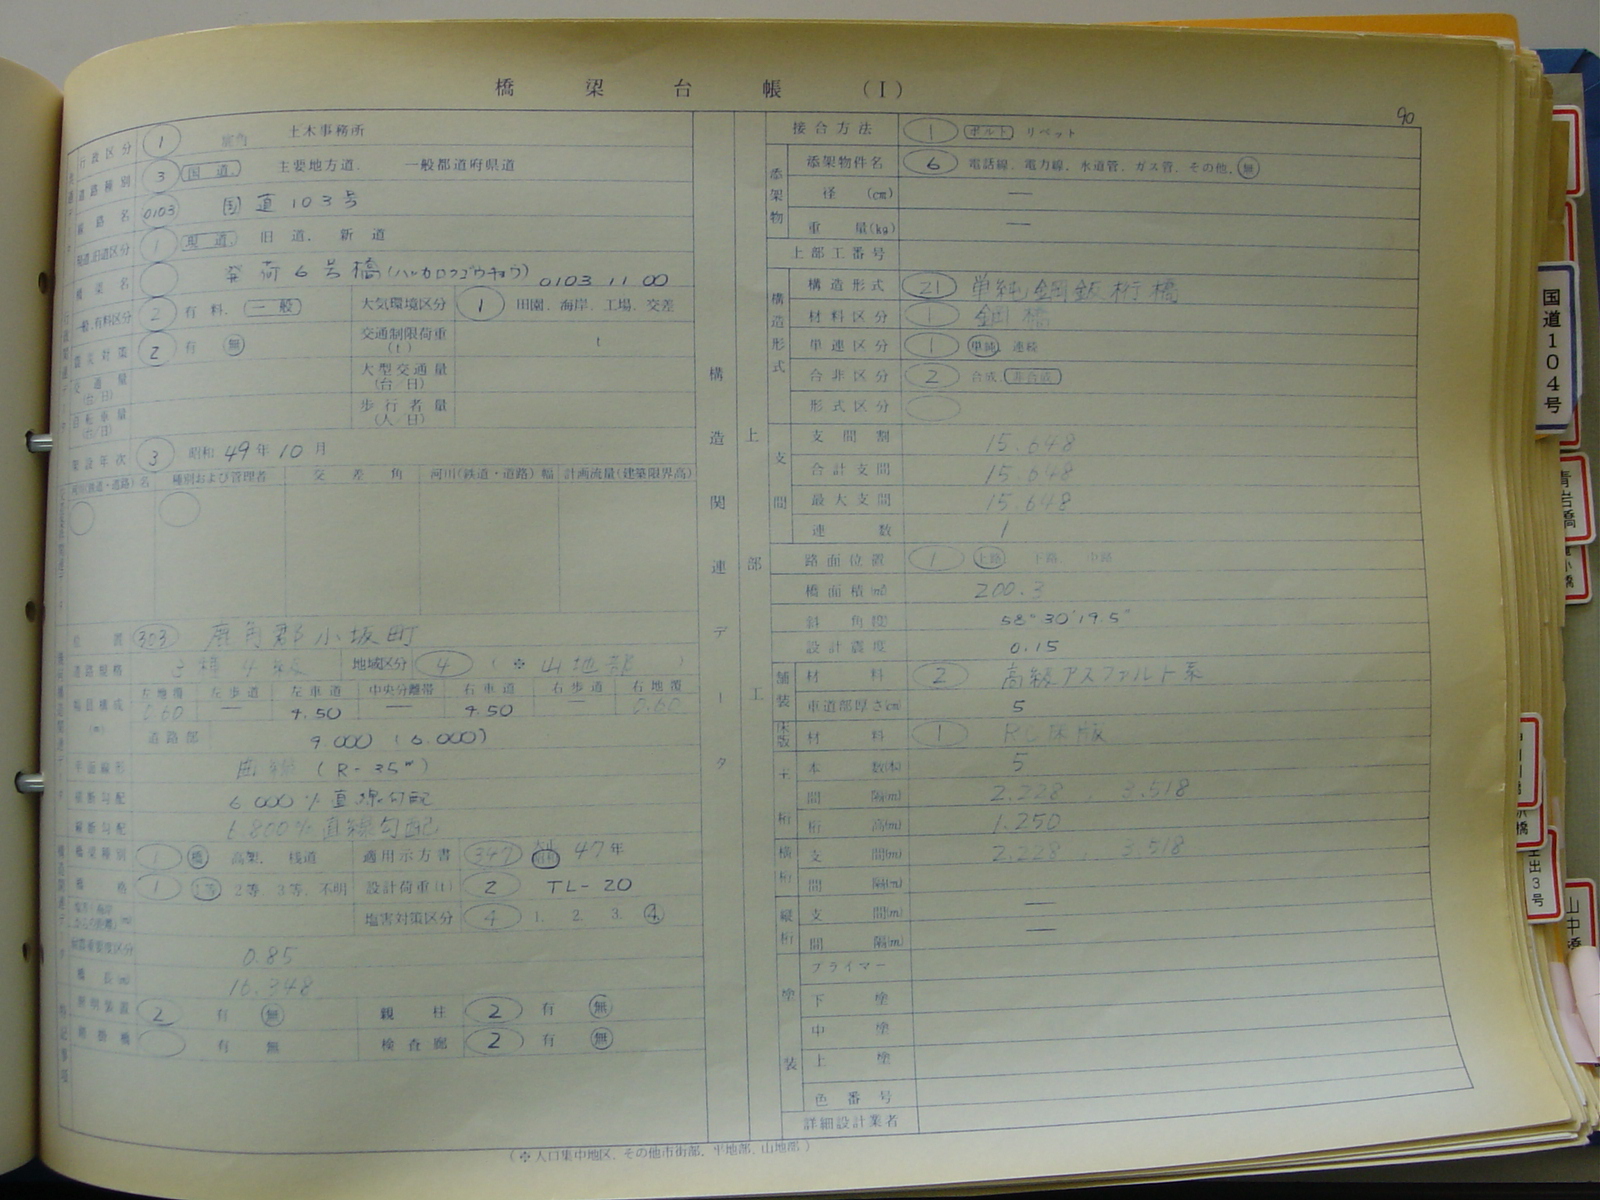 橋梁台帳 (I)
90
行政区分 1 鹿角 土木事務所
道路種別 3 国道. 主要地方道. 一般都道府県道
路線名 0103 国道103号
現道.旧道区分 1 現道. 旧道. 新道
橋梁名 発荷6号橋(ハッカロクゴウキョウ) 0103 11 00
一般.有料区分 2 有料. 一般 大気環境区分 1 田園. 海岸. 工場. 交差
震災対策 2 有 無 交通制限荷重(t) t
交通量(台/日) 大型交通量(台/日)
自転車量(台/日) 歩行者量(人/日)
架設年次 3 昭和49年10月
河川(鉄道・道路)名 種別および管理者 交差角 河川(鉄道・道路)幅 計画流量(建築限界高)
位置 303 鹿角郡小坂町
道路規格 3種4級 地域区分 4 (※山地部)
幅員構成(m) 左地覆 左歩道 左車道 中央分離帯 右車道 右歩道 右地覆
0.60 — 4.50 — 4.50 — 0.60
道路部 9.000 (6.000)
平面線形 曲線 (R-35m)
6.000% 直線勾配
6.800% 直線勾配
橋梁種別 1 橋 高架. 桟道 適用示方書 347 昭和 47年
橋格 1 1等 2等. 3等. 不明 設計荷重(t) 2 TL-20
塩害対策区分 4 1. 2. 3. 4
0.85
橋長(m) 16.348
照明装置 2 有 無 親柱 2 有 無
有 無 検査廊 2 有 無
特記事項
(※人口集中地区、その他市街部、平地部、山地部)
構造関連データ
上部工
接合方法 1 ボルト リベット
添架物
添架物件名 6 電話線. 電力線. 水道管. ガス管. その他. 無
径 (cm) —
重量(kg) —
上部工番号
構造形式
構造形式 21 単純鋼鈑桁橋
材料区分 1 鋼橋
単連区分 1 単純. 連続
合非区分 2 合成. 非合成
形式区分
支間
支間割 15.648
合計支間 15.648
最大支間 15.648
連数 1
路面位置 1 上路. 下路. 中路
橋面積(㎡) 200.3
斜角(度) 58°30′19.5″
設計震度 0.15
舗装
材料 2 高級アスファルト系
車道部厚さ(cm) 5
床版 材料 1 RC床版
主桁
本数(本) 5
間隔(m) 2.228, 3.518
桁高(m) 1.250
横桁
支間(m) 2.228, 3.518
間隔(m)
縦桁
支間(m) —
間隔(m) —
塗装
プライマー
下塗
中塗
上塗
色番号
詳細設計業者
国道104号
青岩橋
山中橋